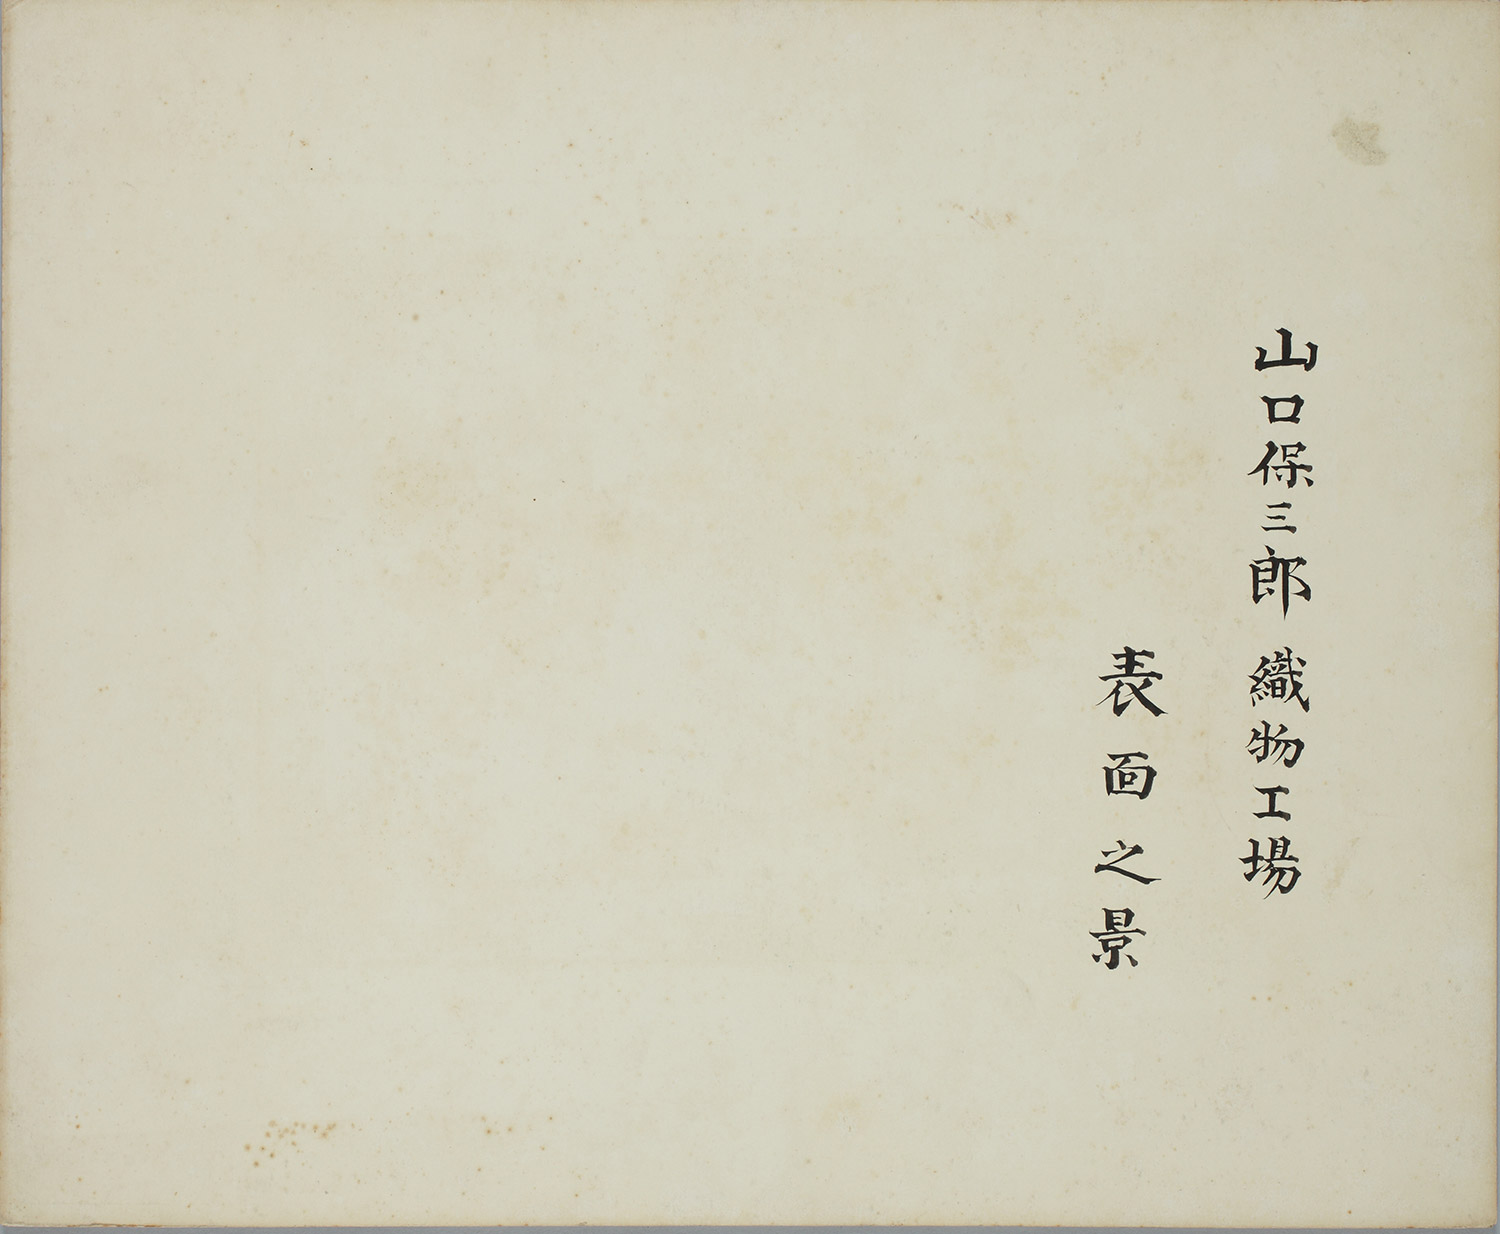 山口保三郎 織物工場
表面之景